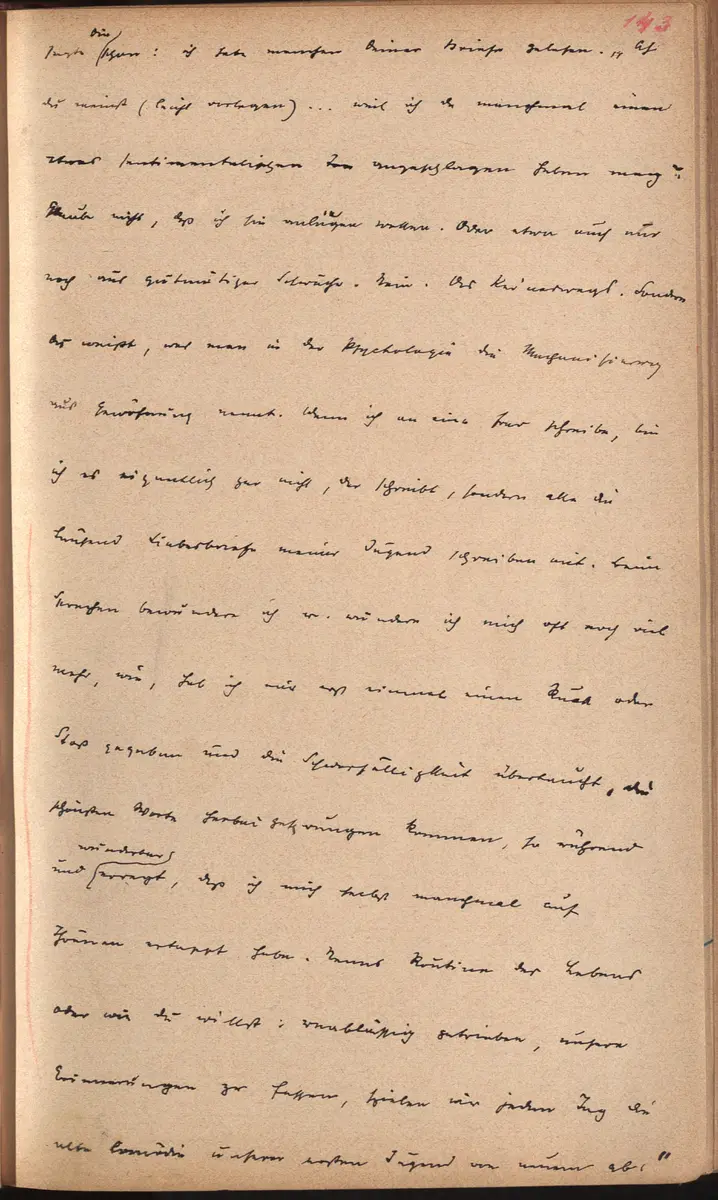 143
sagte Dir schon: ich habe manchen Deiner Briefe gelesen. „Ach
du meinst (leicht verlegen)... weil ich da manchmal einen
etwas sentimentalischen Ton angeschlagen haben mag?
Glaube nicht, daß ich sie anlügen wollen. Oder etwa auch nur
noch aus gutmütiger Schwäche. Nein. Das Keineswegs. Sondern
das weißt, was man in der Psychologie die Mechanisierung
aus Gewöhnung nennt. Wenn ich an eine Frau schreibe, bin
ich es eigentlich gar nicht, der schreibt, sondern alle die
tausend Liebesbriefe meiner Jugend schreiben mit. Beim
Sprechen bewundere ich u. wundere ich mich oft noch viel
mehr, wie, hab ich mir erst einmal einen Ruck oder
Stoß gegeben und die Schwerfälligkeit übertaucht, die
schönsten Worte herbeigezwungen kommen, so rührend
und wunderbar erregt, daß ich mich selbst manchmal auf
Thränen ertappt habe. Nenns Routine des Lebens
oder wie du willst: unablässig getrieben, unsere
Erinnerungen zu hassen, spielen wir jeden Tag die
alte Comödie unserer ersten Jugend von neuem ab."